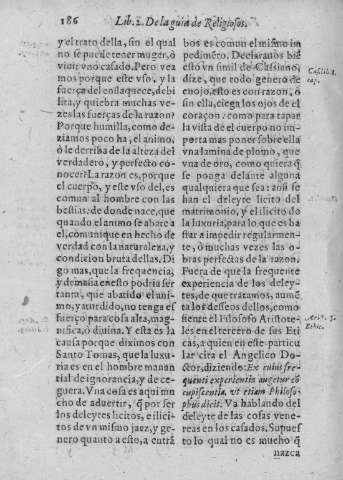 186 Lib. 2. De la guia de Religiosos.
y el trato della, sin el qual
no se puede tener muger, ò
vivir vno casado. Pero vea
mos porque este vso, y la
fuerça del enflaquece, debi
lita, y quiebra muchas ve-
zes las fuerças de la razon?
Porque humilla, como de-
ziamos poco ha, el animo,
ò le derriba de la alteza del
verdadero, y perfecto co-
nocer? La razon es, porque
el cuerpo, y este vso del, es
comun al hombre con las
bestias: de donde nace, que
quando el animo se abate a
el, comunique en hecho de
verdad con la naturaleza, y
condicion bruta dellas. Di
go mas, que la frequencia,
y demasia en esto podria ser
tanta, que abatido el ani-
mo, y aturdido, no tenga es
fuerço para cosa alta, mag-
nifica, ò divina. Y esta es la
causa porque diximos con
Santo Tomas, que la luxu-
ria es en el hombre manan
tial de ignorancia, y de ce-
guera. Vna cosa es aqui mu
cho de advertir, q̃ por ser
los deleytes licitos, e ilici-
tos de vn mismo jaez, y ge-
nero quanto a esto, a entrã
bos es comun el mismo im
pedimẽto. Declaranos biẽ
esto vn simil de Cassiano,
dize, que todo genero de
enojo, esto es con razon, ò
sin ella, ciega los ojos de el
coraçon: como para tapar
la vista de el cuerpo no im-
porta mas poner sobre ella
vna lamina de plomo, que
vna de oro, como quiera q̃
se ponga delante alguna
qualquiera que sea: ansi se
han el deleyte licito del
matrimonio, y el ilicito de
la luxuria, para lo que es ba
star a impedir regularmen-
te, ò muchas vezes las o-
bras perfectas de la razon.
Fuera de que la frequente
experiencia de los deley-
tes, de que tratamos, aumẽ
ta los desseos dellos, como
siente el Filosofo Aristote-
les en el tercero de sus Eti
cas, a quien en este particu
lar cita el Angelico Do-
ctor, diziendo: Ex cuius fre-
quenti experientia augetur cõ
cupiscentia, vt etiam Philoso-
phus dicit. Va hablando del
deleyte de las cosas vene-
reas en los casados. Supues
to lo qual no es mucho q̃
nazca